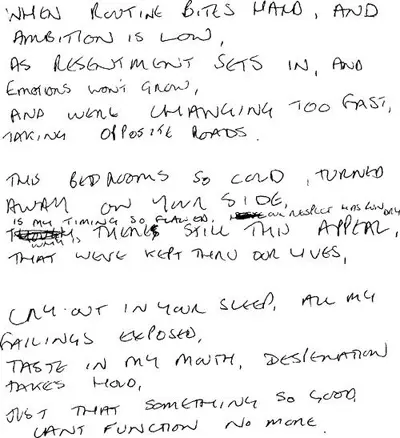 WHEN ROUTINE BITES HARD, AND
AMBITION IS LOW,
AS RESENTMENT SETS IN, AND
EMOTIONS WON'T GROW,
AND WERE CHANGING TOO FAST,
TAKING OPPOSITE ROADS.
THIS BEDROOMS SO COLD, TURNED
AWAY ON YOUR SIDE,
IS MY TIMING SO FLAWED, OUR RESPECT HAS RUN DRY
WHY IS
THERES STILL THIS APPEAL,
THAT WE'VE KEPT THRU OUR LIVES,
CRY OUT IN YOUR SLEEP, ALL MY
FAILINGS EXPOSED,
TASTE IN MY MOUTH, DESPERATION
TAKES HOLD,
JUST THAT SOMETHING SO GOOD,
CANT FUNCTION NO MORE.